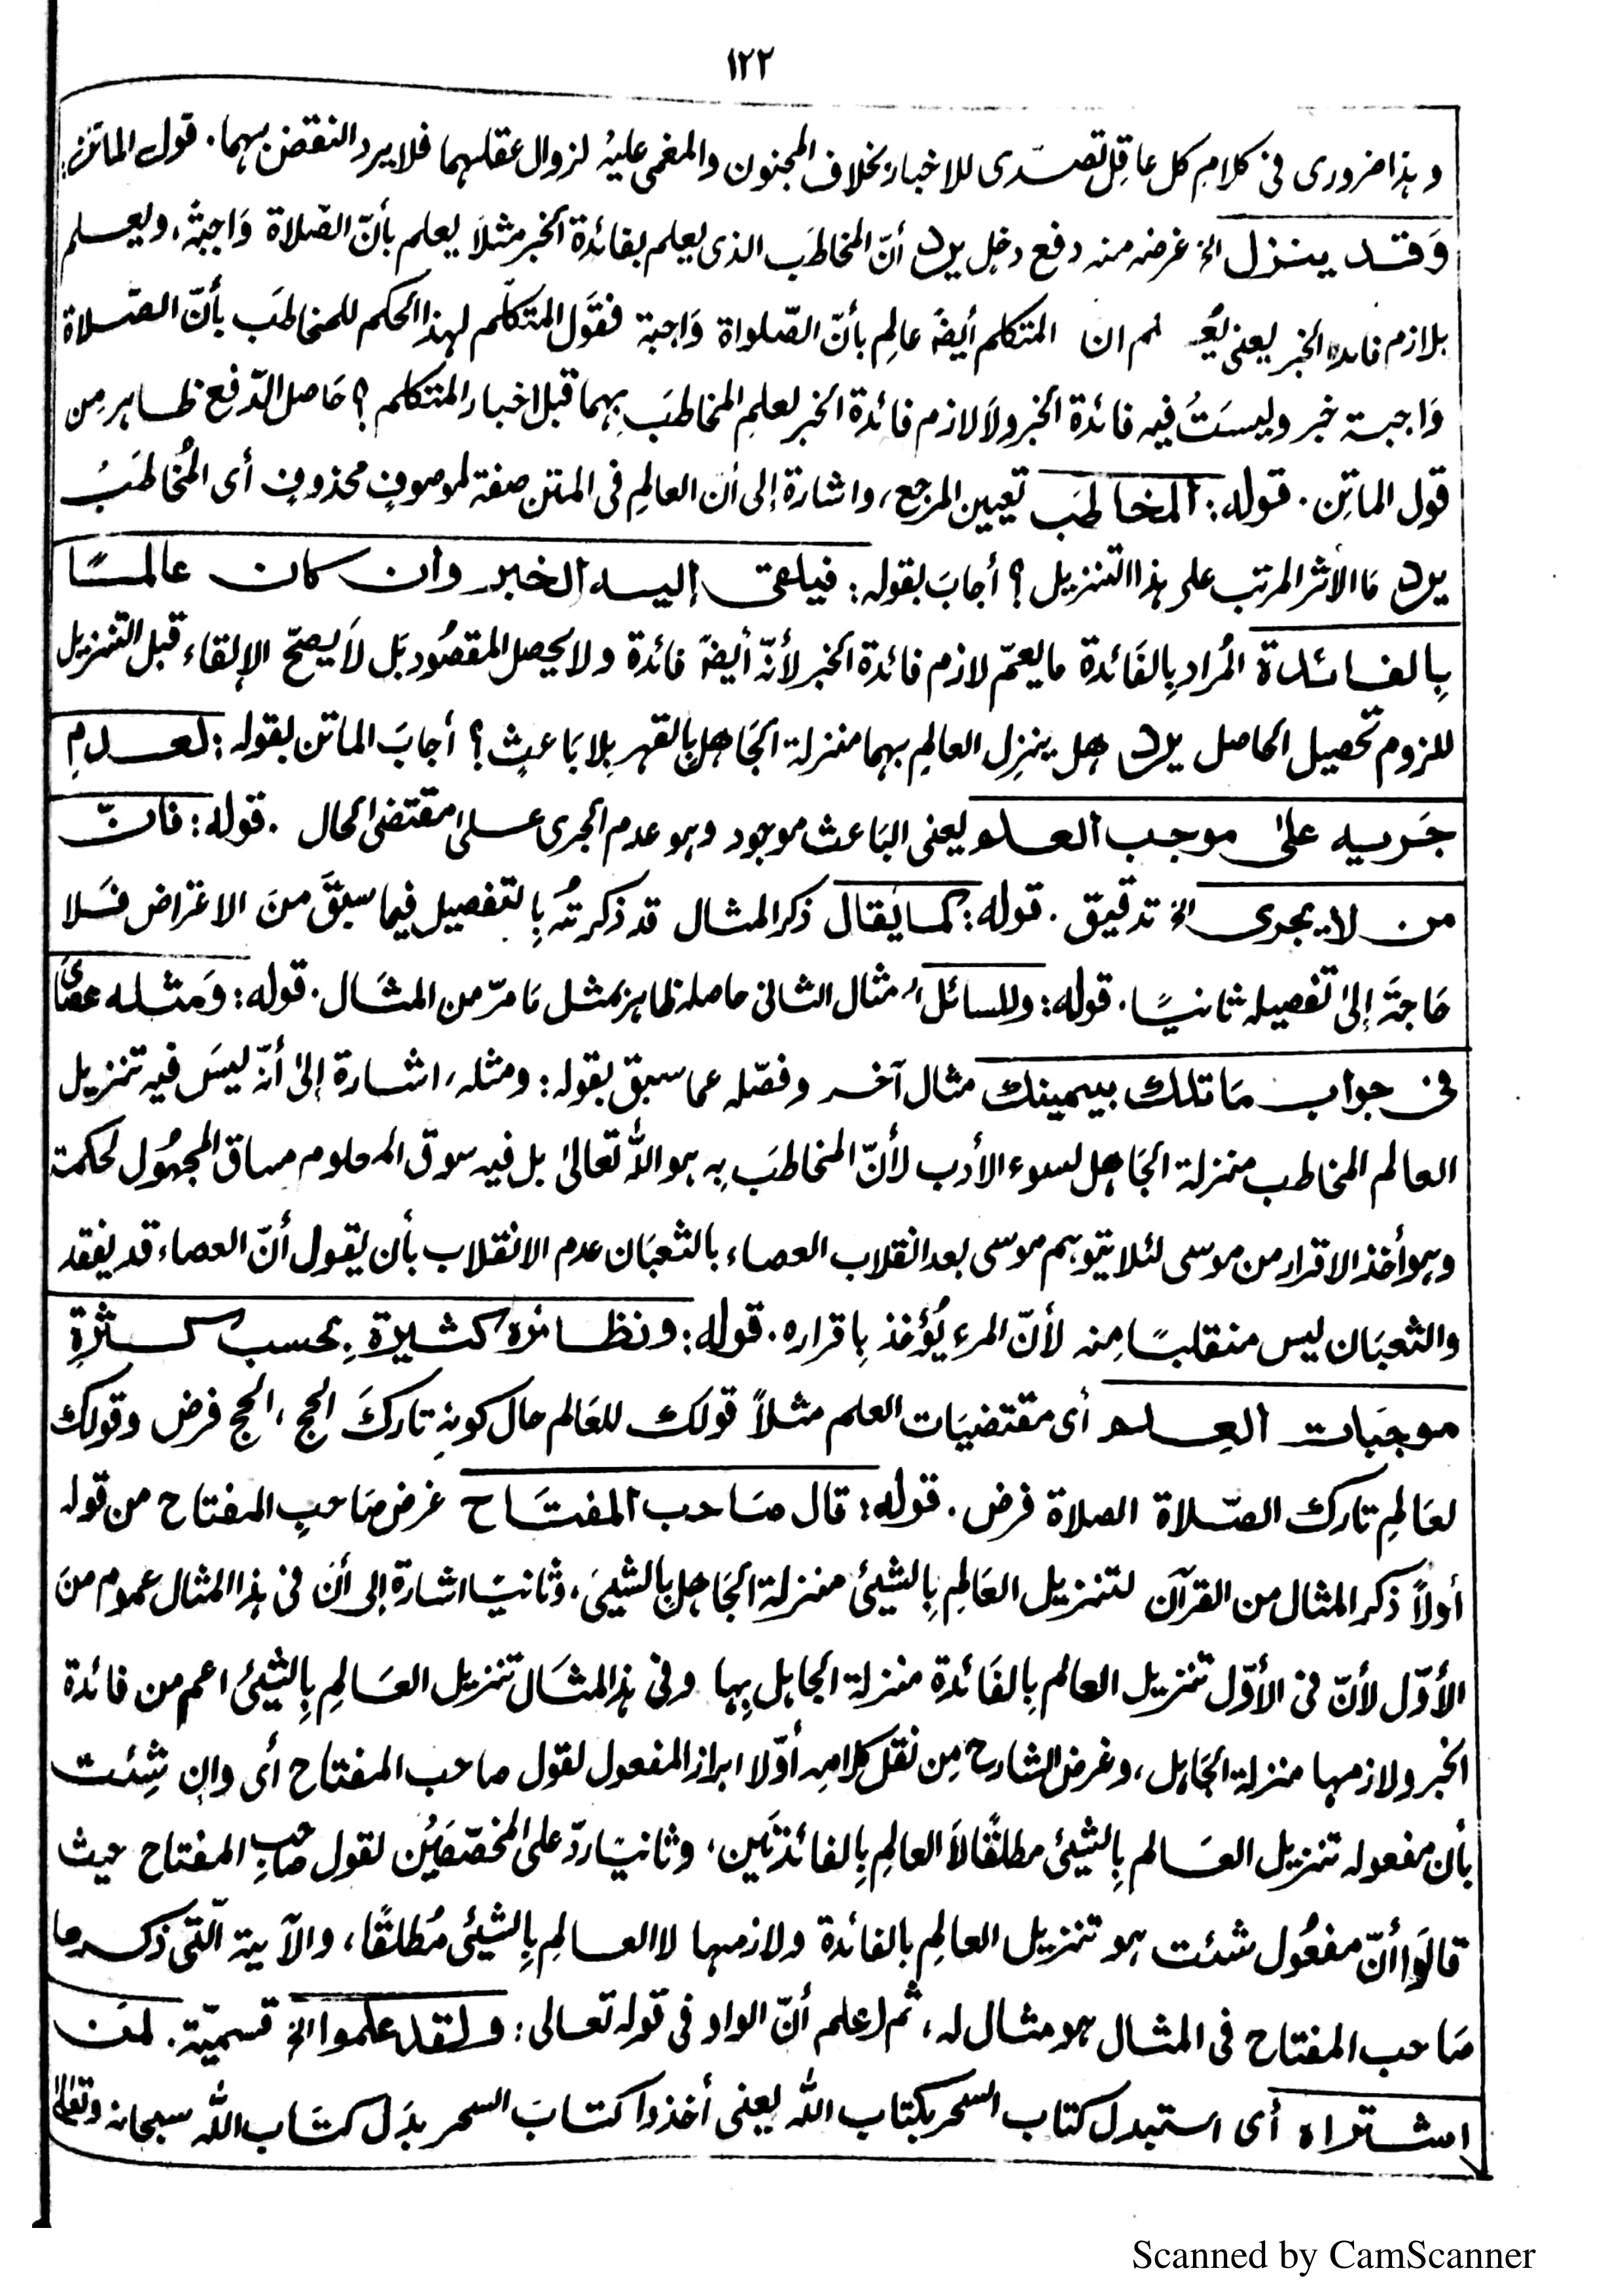 ١٢٢
وہذا ضروری فی کلامِ کل عاقِل تصدّی للاخبار بخلاف المجنون والمغمی علیہ لزوال عقلہما فلا یرد النقض بہما. قول الماتن:
وَقد ینزل الخ غرضہ منہ دفع دخل یرد أنّ المخاطَب الذی یعلم بفائدة الخبر مثلاً یعلم بأنّ الصّلاة وَاجبةٌ، ویعلم
بلازم فائدہ الخبر یعنی یعلم ان المتکلم أیضًا عالِم بأنّ الصّلواة وَاجبة فقَول المتکلّم لہذا الحکم للمخاطَب بأنّ الصّلاة
وَاجبة خبر ولیسَتُ فیہ فائدة الخبر ولا لازم فائدة الخبر لعلم المخاطَب بِہما قبل اخبار المتکلم؟ حَاصل الدّفع ظاہر مِن
قول الماتِن. قولہ: المخاطَب تعیین المرجع، واشارة إلی أن العالِم فی المتن صفة لموصوفٍ محذوفٍ أی المُخاطَبُ
یرد مَا الأثر المرتب علی ہذا التنزیل؟ أجابَ بقولہ: فیلقی إلیہ الخبر وان کان عالمًا
بِالفائدة المُراد بِالفَائدة ما یعمّ لازم فائدة الخبر لأنّہ أیضًا فائدة ولا یحصل المقصُود بَل لاَ یصحّ الإلقاء قبل التنزیل
للزوم تحصیل الحاصل یرد ھل ینزِل العالِم بہما منزلة الجَاھل بِالقہر بِلا بَاعثٍ؟ أجابَ الماتن بقولہ: لعدمِ
جَریہ علیٰ موجب العلم یعنی البَاعث موجود وہو عدم الجری علیٰ مقتضی الحال. قولہ: فانّ
من لا یجری الخ تدقیق. قولہ: کما یُقال ذکر المثال قد ذکرتُہ بِالتفصیل فیما سبقَ منَ الاعتراض فَلا
حَاجةَ إلیٰ تفصیلہ ثانیًا. قولہ: وللسائل الخ مثال الثانی حاصلہ ظاہر بمثل مَا مرّ من المثَال. قولہ: وَمثلہ عصَایَ
فی جواب مَا تلك بیمینك مثال آخر وفصّلہ عما سبق بقولہ: ومثلہ، اشارة إلیٰ أنّہ لیسَ فیہ تنزیل
العالم المخاطب منزلة الجَاھل لسوء الأدب لأنّ المخاطَب بِہ ہو اللّٰہ تعالیٰ بل فیہ سوق المعلوم مساق المجہُول لحکمة
وہو أخذ الاقرار من موسی لئلا یتوہم موسی بعد انقلاب العصاء بالثعبَان عدم الانقلاب بأن یقول أنّ العصاء قد یفقد
والثعبَان لیس منقلبًا مِنہ لأنّ المرء یُؤخذ بِاقرارہ. قولہ: ونظائرہ کثیرة بحسب کثرةِ
موجبَات العِلم أی مقتضیَات العلم مثلاً قولك للعَالم حال کونہِ تارکَ الحج، الحج فرض وقولك
لعَالِمِ تارك الصّلاة الصلاة فرض. قولہ: قال صَاحب المفتَاح غرض صَاحبِ المفتاح من قولہ
أولاً ذکر المثال من القرآن لتنزیل العَالِم بِالشیئ منزلة الجَاھل بِالشیئ، وثانیًا اشارة إلی أن فی ہذا المثال عموم منَ
الأوّل لأنّ فی الأوّل تنزیل العالم بِالفَائدة منزلة الجاہل بِہا وفی ہذ المثَال تنزیل العَالِم بِالشیئ اعم من فائدة
الخبر ولازمہا منزلة الجَاہل، وغرض الشارح مِن نقل کلامِہ أوّلا ابراز المفعول لقول صاحب المفتاح أی وان شِئت
بأن مفعولہ تنزیل العَالم بِالشیئ مطلقًا لاَ العالِم بِالفائدتَین، وثانیًا ردّ علی المخصّصَیْن لقول صَاحبِ المفتاح حیث
قالَوا أنّ مفعُول شئت ہو تنزیل العالِم بالفائدة ولازمہا لا العالِم بِالشیئ مُطلقًا، والآیة الّتی ذکرہا
صَاحب المفتاح فی المثال ہو مثال لہ، ثم اعلم أنّ الواو فی قولہ تعالی: ولقد علموا الخ قسمیّة. لمن
اشتراہ أی استبدل کتاب السحر بکتاب اللّٰہ یعنی أخذوا کتابَ السحر بدَل کتَاب اللّٰہ سبحانہ وتعالیٰ
Scanned by CamScanner